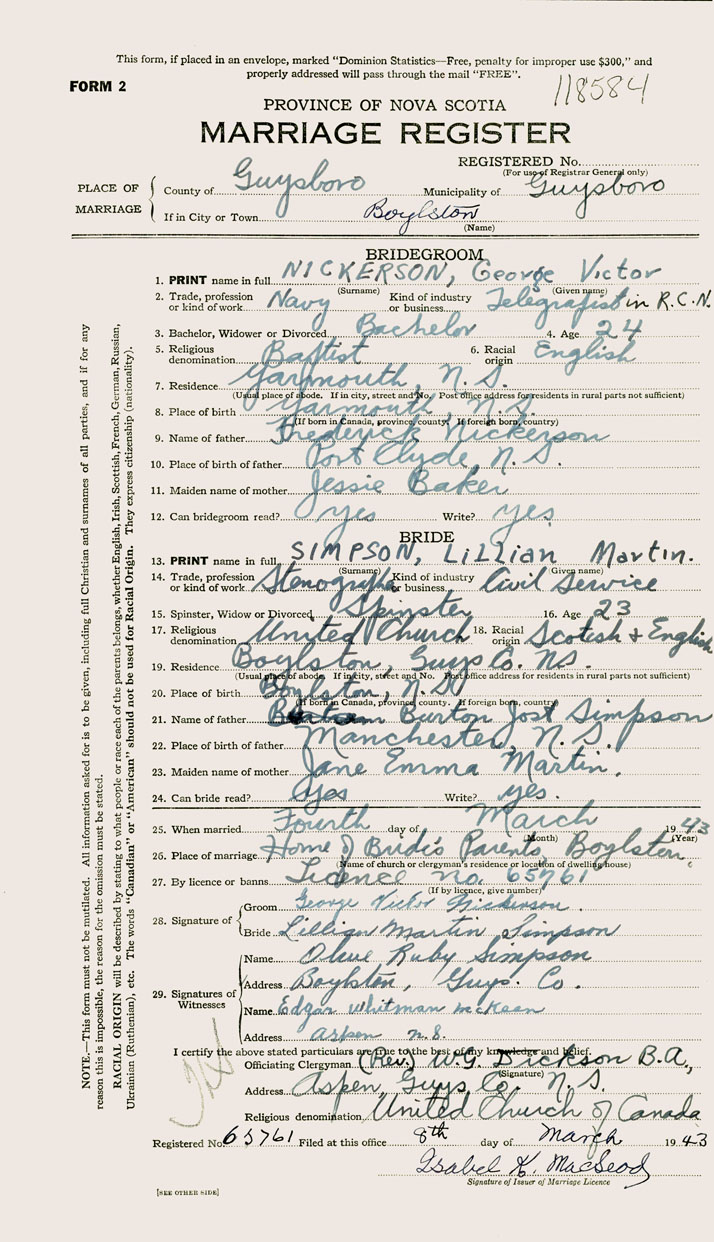 This form, if placed in an envelope, marked “Dominion Statistics—Free, penalty for improper use $300,” and
properly addressed will pass through the mail “FREE”.
FORM 2
118584
PROVINCE OF NOVA SCOTIA
MARRIAGE REGISTER
REGISTERED No.
(For use of Registrar General only)
PLACE OF MARRIAGE
County of Guysboro Municipality of Guysboro
If in City or Town Boylston
(Name)
BRIDEGROOM
1. PRINT name in full NICKERSON, George Victor
(Surname) (Given name)
2. Trade, profession or kind of work Navy Kind of industry or business. Telegrafist in R.C.N.
3. Bachelor, Widower or Divorced Bachelor 4. Age 24
5. Religious denomination Baptist 6. Racial origin English
7. Residence Yarmouth, N.S.
(Usual place of abode. If in city, street and No. Post office address for residents in rural parts not sufficient)
8. Place of birth Yarmouth, N.S.
(If born in Canada, province, county. If foreign born, country)
9. Name of father Frederick Nickerson
10. Place of birth of father Port Clyde, N.S.
11. Maiden name of mother Jessie Baker
12. Can bridegroom read? yes Write? yes
BRIDE
13. PRINT name in full SIMPSON, LiLLian Martin.
(Surname) (Given name)
14. Trade, profession or kind of work Stenographer Kind of industry or business Civil Service
15. Spinster, Widow or Divorced Spinster 16. Age 23
17. Religious denomination United Church 18. Racial origin Scotish & English
19. Residence Boylston, Guys Co. N.S.
(Usual place of abode. If in city, street and No. Post office address for residents in rural parts not sufficient)
20. Place of birth Boylston, N.S.
(If born in Canada, province, county. If foreign born, country)
21. Name of father Burton Jost Simpson
22. Place of birth of father Manchester, N.S.
23. Maiden name of mother Jane Emma Martin.
24. Can bride read? yes Write? yes.
25. When married Fourth day of March 1943
(Month) (Year)
26. Place of marriage Home of Bride's Parents, Boylston.
(Name of church or clergyman's residence or location of dwelling house)
27. By licence or banns Licence no. 65761
(If by licence, give number)
28. Signature of
Groom George Victor Nickerson.
Bride Lillian Martin Simpson
29. Signatures of Witnesses
Name Olive Ruby Simpson
Address Boylston, Guys. Co.
Name Edgar Whitman McKeen
Address Aspen N.S.
I certify the above stated particulars are true to the best of my knowledge and belief.
Officiating Clergyman (Rev.) W.G. Dickson B.A.,
(Signature)
Address Aspen, Guys Co. N.S.
Religious denomination United Church of Canada
Registered No. 65761 Filed at this office 8th day of March 1943
Isabel K. MacLeod
Signature of Issuer of Marriage Licence
[SEE OTHER SIDE]
NOTE.—This form must not be mutilated. All information asked for is to be given, including full Christian and surnames of all parties, and if for any
reason this is impossible, the reason for the omission must be stated.
RACIAL ORIGIN will be described by stating to what people or race each of the parents belongs, whether English, Irish, Scottish, French, German, Russian,
Ukrainian (Ruthenian), etc. The words “Canadian” or “American” should not be used for Racial Origin. They express citizenship (nationality).